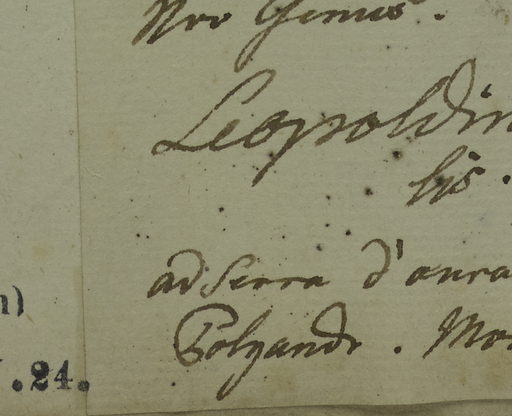 Nov Genus.
Leopoldin
lis.
ad Serra d'oura
Polyandr. Mo
n)
.24.